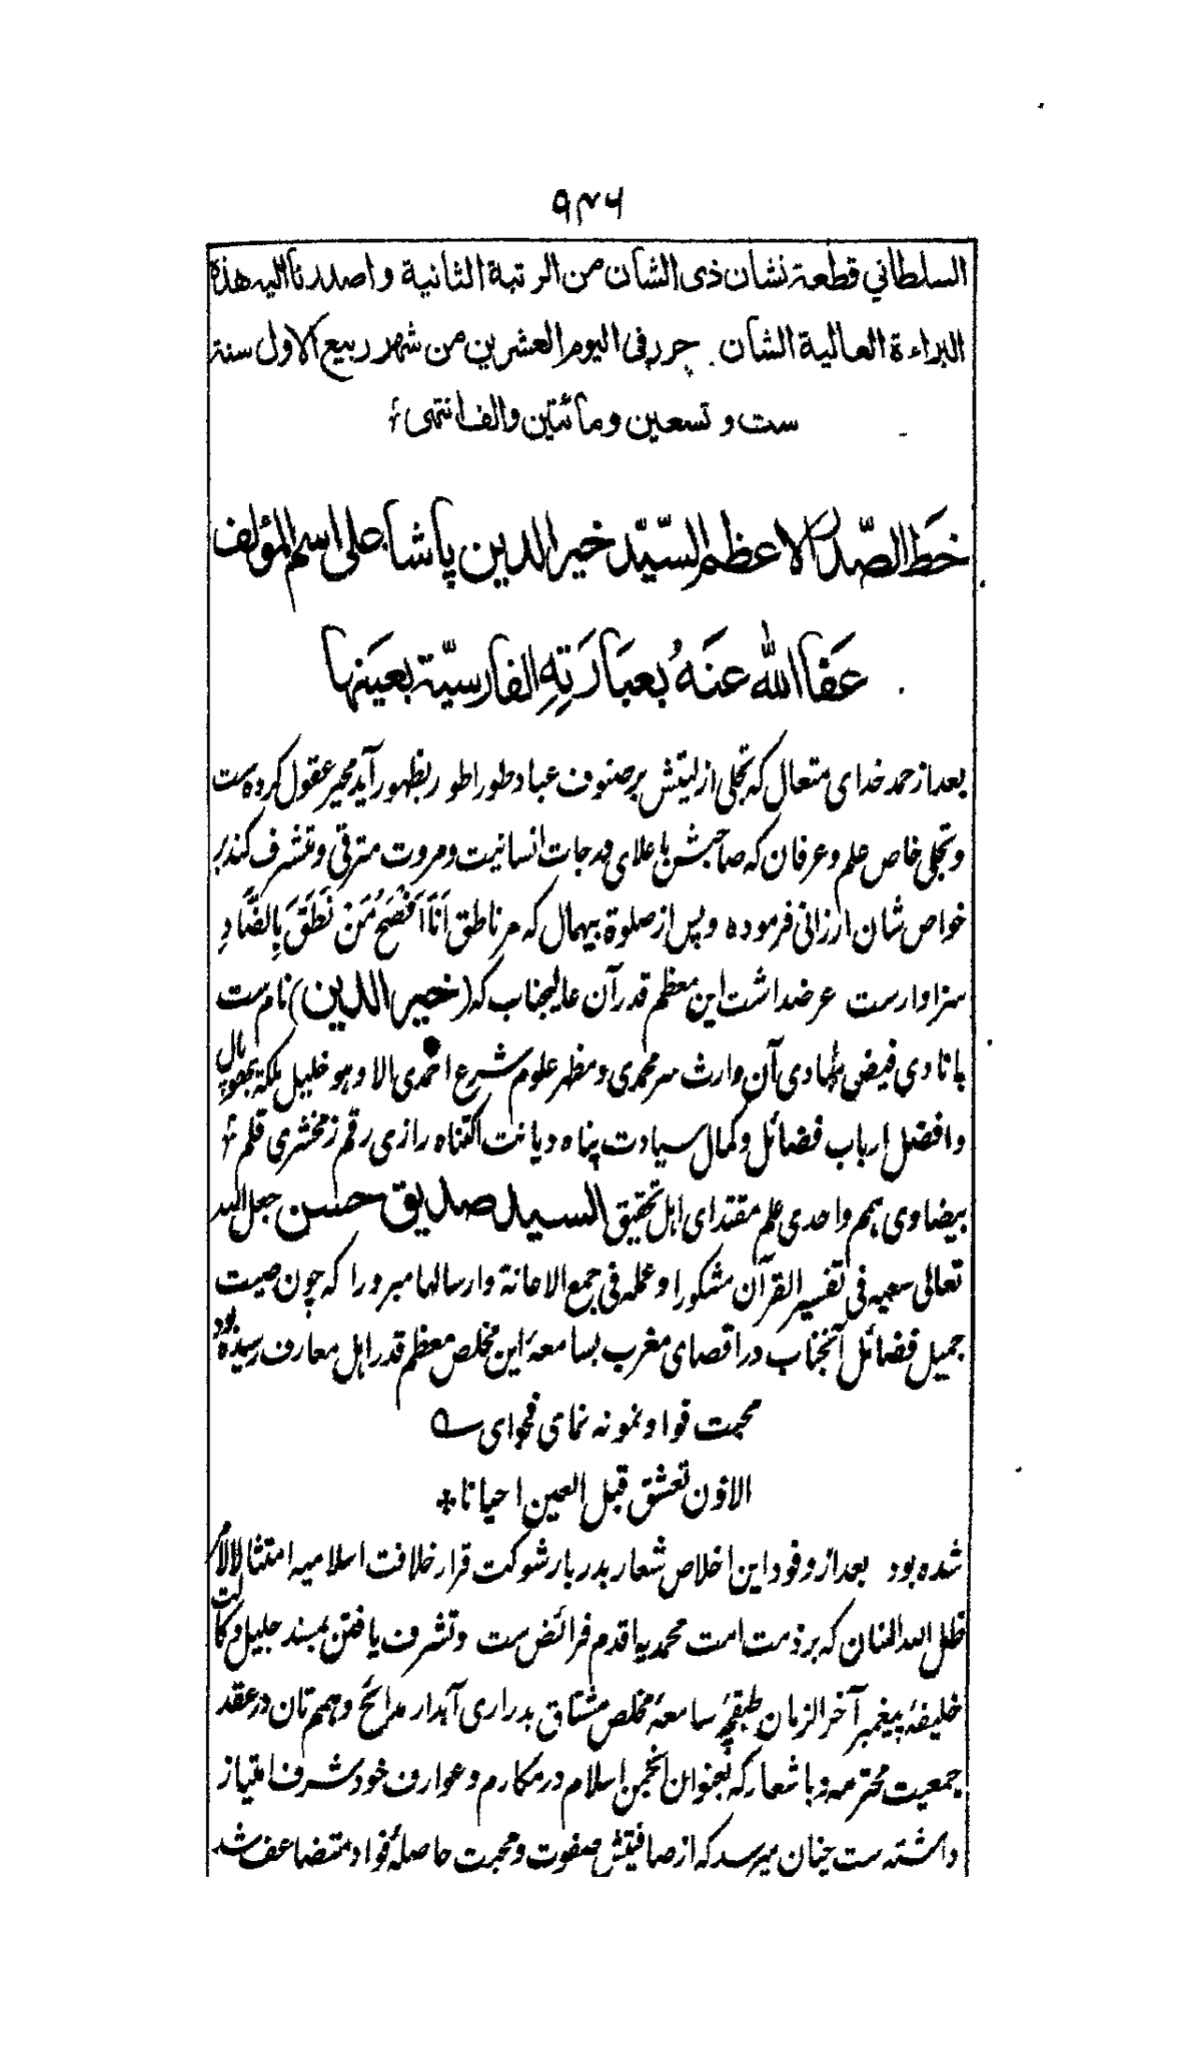 ٩٣٦
السلطاني قطعة نشان ذی الشان من الرتبة الثانیة واصدرنا الیه هذه
البراءة العالیة الشان حرر فی الیوم العشرین من شهر ربیع الاول سنة
ست و تسعین و مائتین والف انتهی
خط الصّدر الاعظم السیّد خیر الدین پاشا علی اسم المؤلف
عَفَا اللّٰه عَنهُ بعبَارَتِهِ الفارسیّة بعَینها
بعد از حمد خدای متعال که تجلی ازلیتش بر صنوف عباد طورا طور بظهور آید محیر عقول کرده ست
و تجلی خاص علم و عرفان که صاحبش با علای درجات انسانیت و مروت مترقی و متشرف کند بر
خواص شان ارزانی فرموده و پس از صلوة بیهمال که مر ناطق اَنَا اَفْصَحُ مَنْ نَطَقَ بِالضَّادِ
سزاوار ست عرضداشت این معظم قدر آن عالیجناب که (خیر الدین) نام ست
بانادی فیض آن وارث سر محمدی و مظهر علوم شرع احمدی الا و هو خلیل ملکة بهوپال
و افضل ارباب فضائل و کمال سیادت پناه دیانت اکتناه رازی رقم زمخشری قلم
بیضاوی همم واحدی علم مقتدای اهل تحقیق السید صدیق حسن جعل الله
تعالی سعیه فی تفسیر القرآن مشکورا و عمله فی جمع الاعانة و ارسالها مبرورا که چون صیت
جمیل فضائل آنجناب در اقصای مغرب بسامعهٔ این مخلص معظم قدر اهل معارف رسیده بود
محبت فواد نمونه نمای فحوای
الاذن تعشق قبل العین احیانا
شده بود بعد از وفود این اخلاص شعار بدربار شوکت قرار خلافت اسلامیه امتثالا لامر
ظل الله المنان که بر ذمت امت محمدیه اقدم فرائض ست و تشرف یافتن بمسند جلیل وکالت
خلیفهٔ پیغمبر آخر الزمان سامعهٔ مخلص مشتاق بدراری آبدار مدائح و همم تان در عقد
جمعیت محترمه و باشعار که بعنوان انجمن اسلام در مکارم و عوارف خود شرف امتیاز
داشته ست چنان میرسد که از صافیتش صفوت و محبت حاصلهٔ فواد متضاعف شد